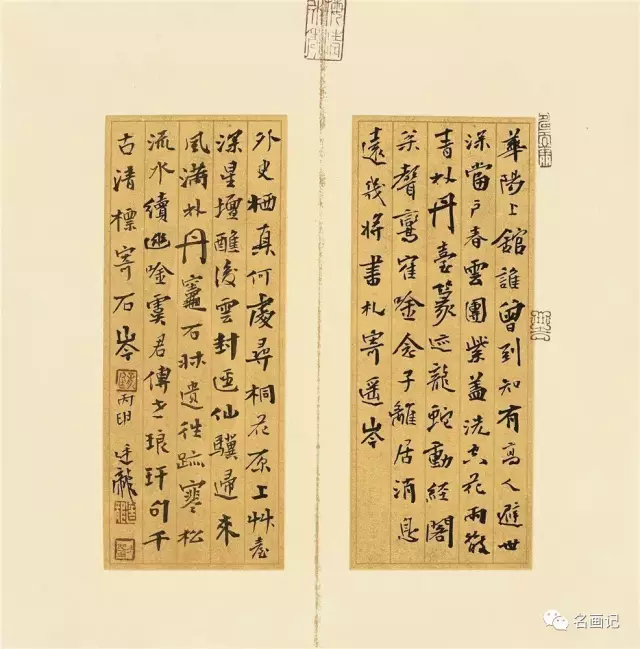 華陽上館誰曾到知有高人避世
深當户春雲團紫蓋洗空花雨散
青林丹臺篆迹龍蛇動經閣
樂聲鸞寉唫念子離居消息
遠幾將書札寄遥岑
外史栖真何處尋桐花原上艸臺
深星壇醮後雲封匝仙驥歸來
風滿林丹竈石牀遺往跡寒松
流水續唫虞君傳琅玕句千
古清標寄石岑
丙申
廷龍
名画记